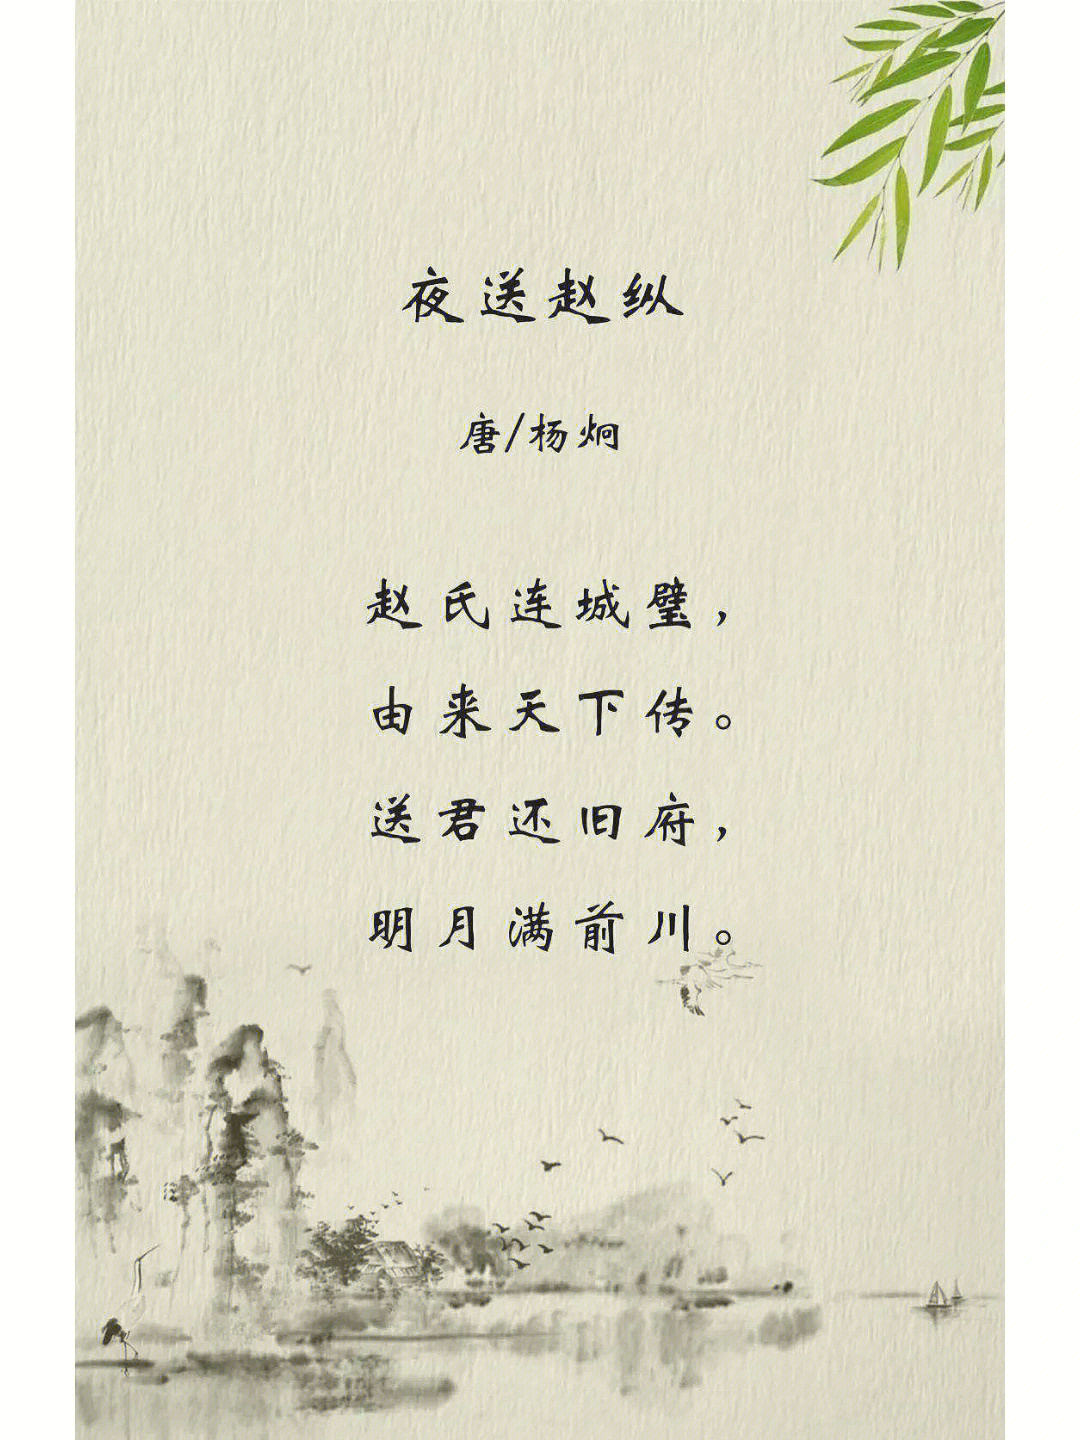 夜送赵纵
唐/杨炯
赵氏连城璧，
由来天下传。
送君还旧府，
明月满前川。